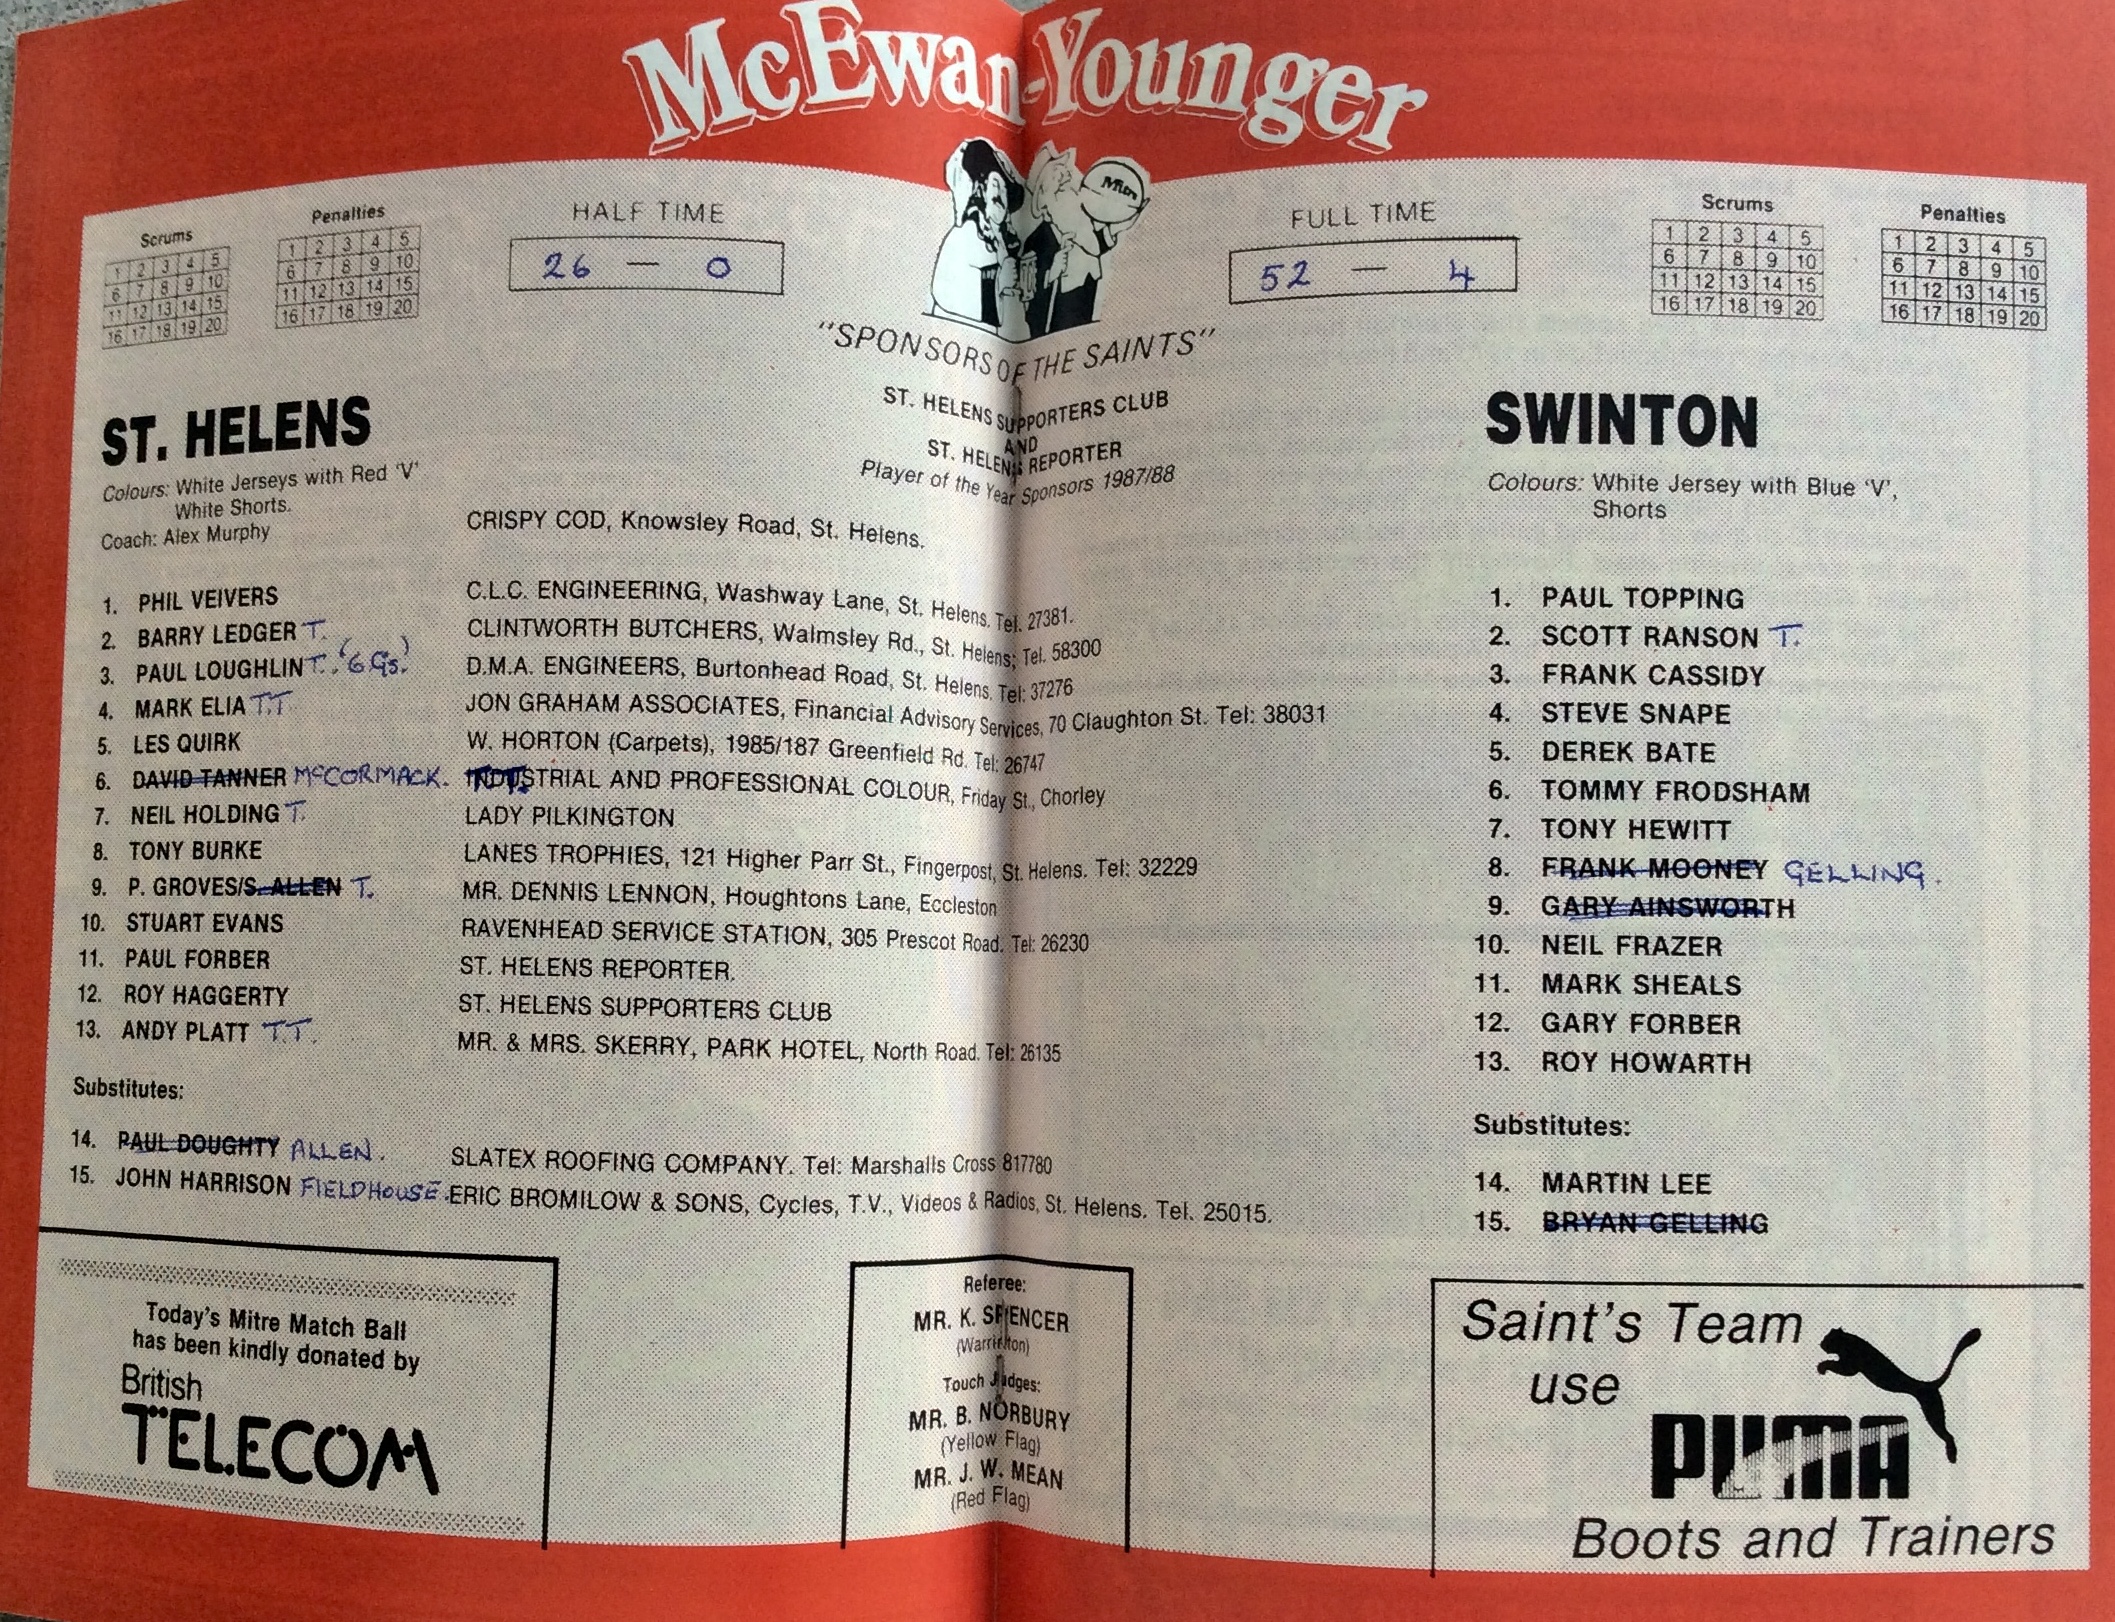 McEwan-Younger
Mitre
Scrums
1 2 3 4 5
6 7 8 9 10
11 12 13 14 15
16 17 18 19 20
Penalties
1 2 3 4 5
6 7 8 9 10
11 12 13 14 15
16 17 18 19 20
HALF TIME
26 — 0
FULL TIME
52 — 4
Scrums
1 2 3 4 5
6 7 8 9 10
11 12 13 14 15
16 17 18 19 20
Penalties
1 2 3 4 5
6 7 8 9 10
11 12 13 14 15
16 17 18 19 20
"SPONSORS OF THE SAINTS"
ST. HELENS SUPPORTERS CLUB
AND
ST. HELENS REPORTER
Player of the Year Sponsors 1987/88
ST. HELENS
Colours: White Jerseys with Red 'V'
White Shorts.
Coach: Alex Murphy
CRISPY COD, Knowsley Road, St. Helens.
1. PHIL VEIVERS C.L.C. ENGINEERING, Washway Lane, St. Helens. Tel. 27381.
2. BARRY LEDGER T. CLINTWORTH BUTCHERS, Walmsley Rd., St. Helens; Tel. 58300
3. PAUL LOUGHLIN T. '6 Gs.' D.M.A. ENGINEERS, Burtonhead Road, St. Helens. Tel: 37276
4. MARK ELIA T.T JON GRAHAM ASSOCIATES, Financial Advisory Services, 70 Claughton St. Tel: 38031
5. LES QUIRK W. HORTON (Carpets), 1985/187 Greenfield Rd. Tel: 26747
6. DAVID TANNER McCORMACK. T.T. INDUSTRIAL AND PROFESSIONAL COLOUR, Friday St., Chorley
7. NEIL HOLDING T. LADY PILKINGTON
8. TONY BURKE LANES TROPHIES, 121 Higher Parr St., Fingerpost, St. Helens. Tel: 32229
9. P. GROVES/S. ALLEN T. MR. DENNIS LENNON, Houghtons Lane, Eccleston
10. STUART EVANS RAVENHEAD SERVICE STATION, 305 Prescot Road. Tel: 26230
11. PAUL FORBER ST. HELENS REPORTER.
12. ROY HAGGERTY ST. HELENS SUPPORTERS CLUB
13. ANDY PLATT T.T. MR. & MRS. SKERRY, PARK HOTEL, North Road. Tel: 26135
Substitutes:
14. PAUL DOUGHTY ALLEN. SLATEX ROOFING COMPANY. Tel: Marshalls Cross 817780
15. JOHN HARRISON FIELDHOUSE. ERIC BROMILOW & SONS, Cycles, T.V., Videos & Radios, St. Helens. Tel. 25015.
SWINTON
Colours: White Jersey with Blue 'V',
Shorts
1. PAUL TOPPING
2. SCOTT RANSON T.
3. FRANK CASSIDY
4. STEVE SNAPE
5. DEREK BATE
6. TOMMY FRODSHAM
7. TONY HEWITT
8. FRANK MOONEY GELLING.
9. GARY AINSWORTH
10. NEIL FRAZER
11. MARK SHEALS
12. GARY FORBER
13. ROY HOWARTH
Substitutes:
14. MARTIN LEE
15. BRYAN GELLING
Today's Mitre Match Ball
has been kindly donated by
British
TELECOM
Referee:
MR. K. SPENCER
(Warrington)
Touch Judges:
MR. B. NORBURY
(Yellow Flag)
MR. J. W. MEAN
(Red Flag)
Saint's Team
use
PUMA
Boots and Trainers